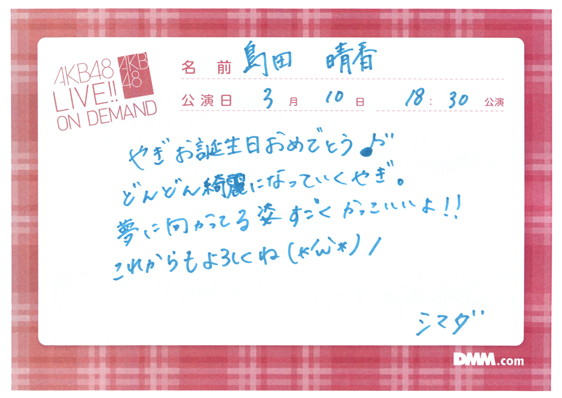 AKB48
LIVE!!
ON DEMAND
AKB
48
名 前 島田 晴香
公演日 3月 10日 18:30 公演
やぎお誕生日おめでとう♪
どんどん綺麗になっていくやぎ。
夢に向かってる姿すごくかっこいいよ!!
これからもよろしくね(*'ω'*)ノ
シマダ
DMM.com